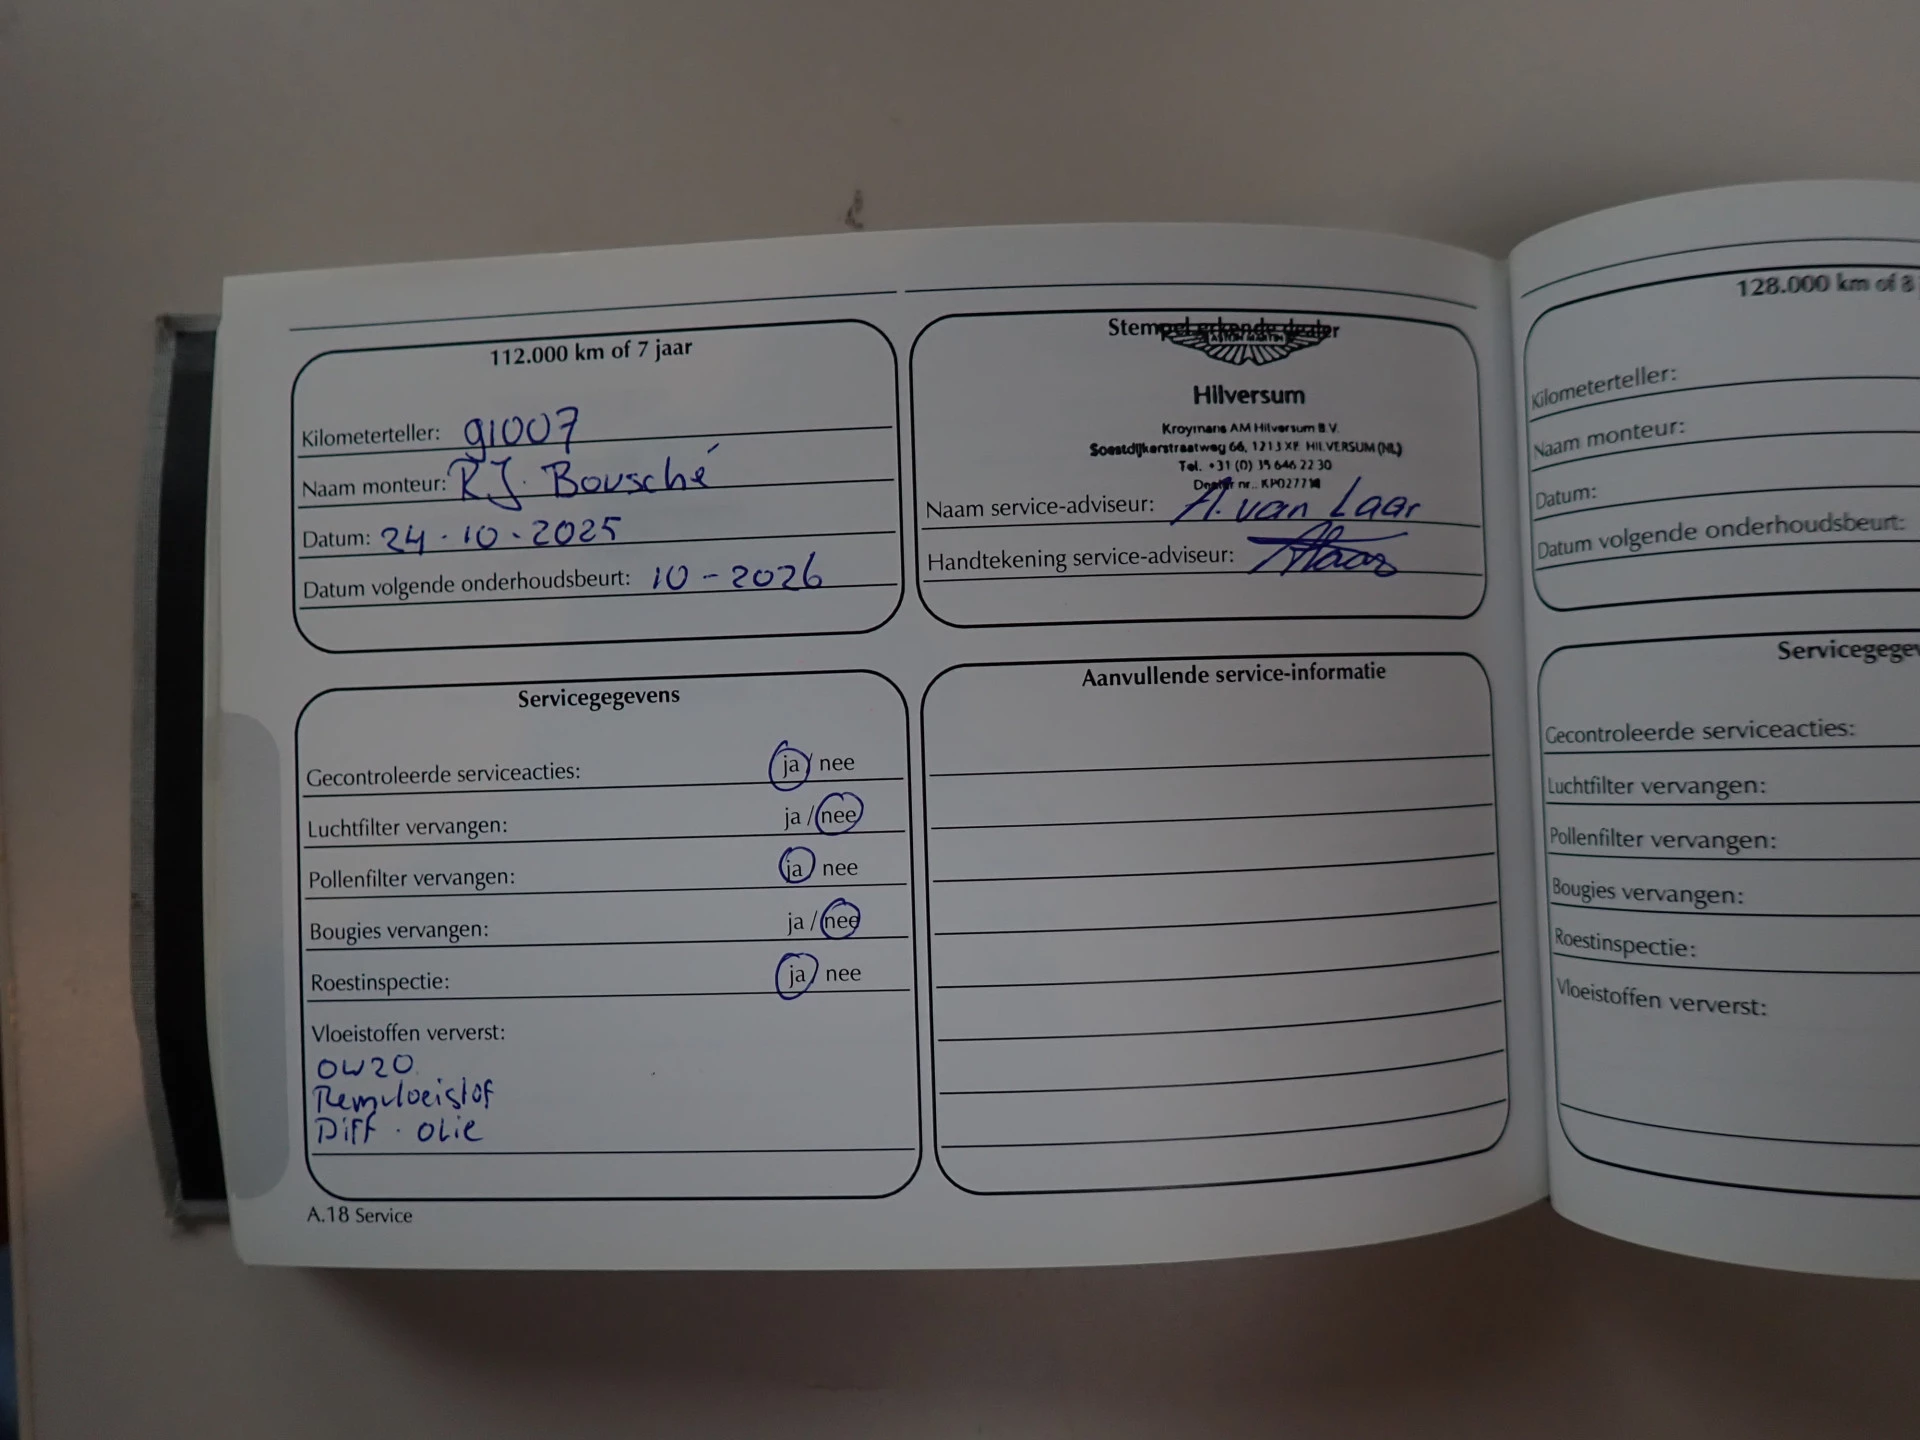 112.000 km of 7 jaar
Kilometerteller: 91007
Naam monteur: RJ. Bousché
Datum: 24-10-2025
Datum volgende onderhoudsbeurt: 10-2026
Stempel erkende dealer
ASTON MARTIN
Hilversum
Kroymans AM Hilversum B.V.
Soestdijkerstraatweg 66, 1213 XE HILVERSUM (NL)
Tel. +31 (0) 35 646 22 30
Dealer nr..
Naam service-adviseur: A. van Laar
Handtekening service-adviseur:
Servicegegevens
Gecontroleerde serviceacties: ja / nee
Luchtfilter vervangen: ja / nee
Pollenfilter vervangen: ja / nee
Bougies vervangen: ja / nee
Roestinspectie: ja / nee
Vloeistoffen ververst:
0W20
Remvloeistof
Diff. olie
Aanvullende service-informatie
A.18 Service
128.000 km of 8
Kilometerteller:
Naam monteur:
Datum:
Datum volgende onderhoudsbeurt:
Servicegegev
Gecontroleerde serviceacties:
Luchtfilter vervangen:
Pollenfilter vervangen:
Bougies vervangen:
Roestinspectie:
Vloeistoffen ververst: